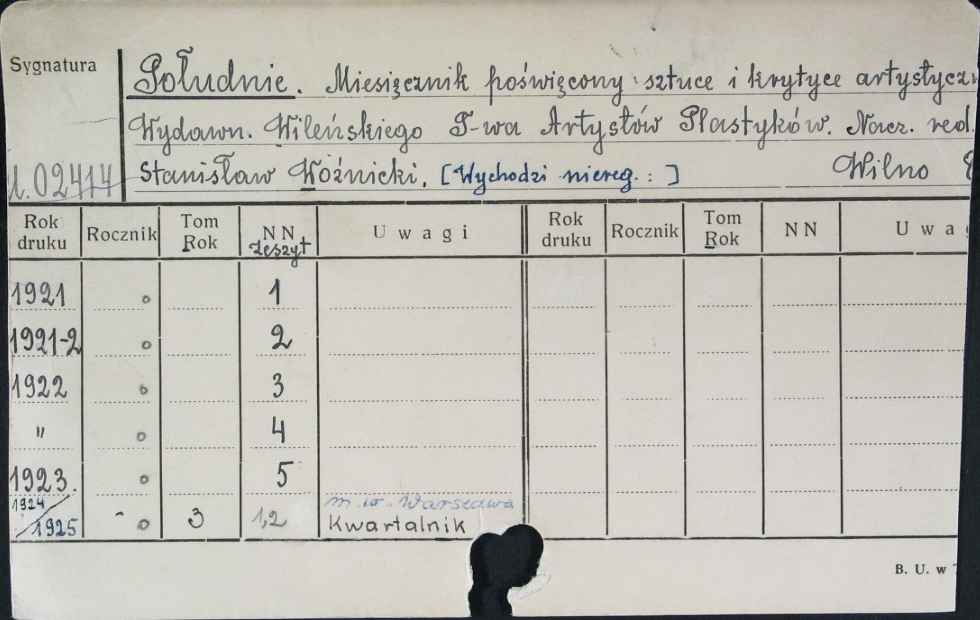 Sygnatura
Południe. Miesięcznik poświęcony sztuce i krytyce artystycz
Wydawn. Wileńskiego T-wa Artystów Plastyków. Nacz. red.
1.02414 Stanisław Woźnicki. [Wychodzi niereg.:] Wilno
Rok druku Rocznik Tom Rok NN zeszyt Uwagi Rok druku Rocznik Tom Rok NN Uwag
1921 o 1
1921-2 o 2
1922 o 3
" o 4
1923. o 5
1924 m. w. Warszawa
1925 - o 3 1,2 Kwartalnik
B. U. w